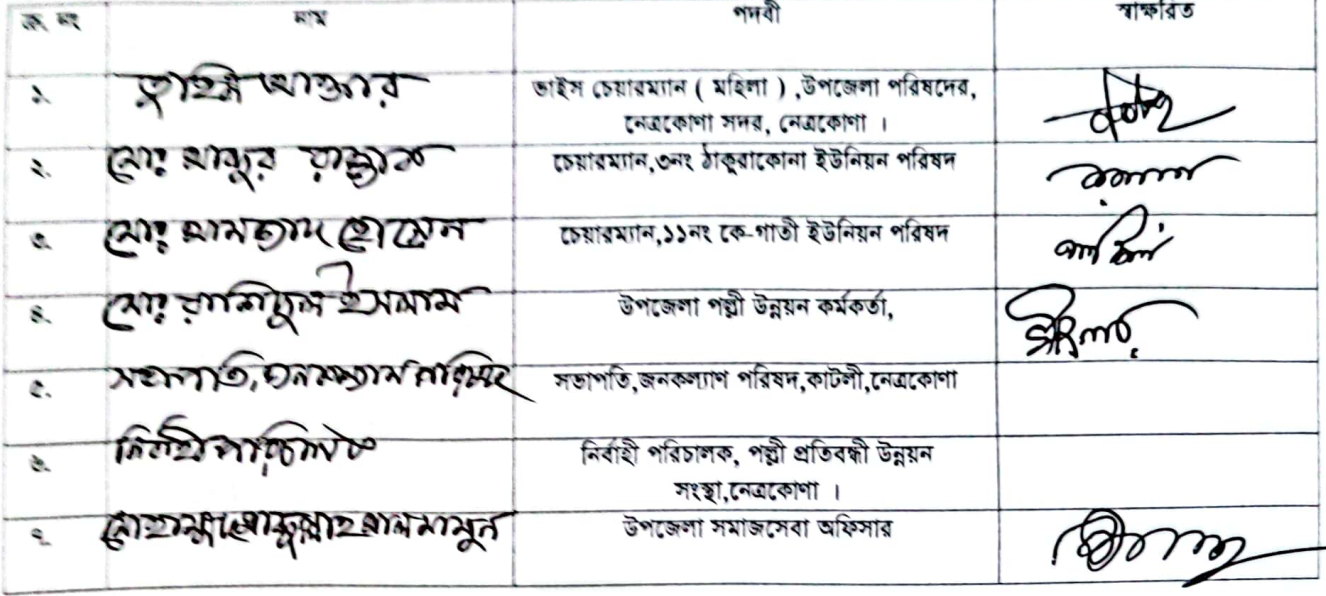 ক্র. নং নাম পদবী স্বাক্ষরিত
১. তুহিন আক্তার ভাইস চেয়ারম্যান ( মহিলা ) ,উপজেলা পরিষদের,
নেত্রকোণা সদর, নেত্রকোণা ।
২. মোঃ আব্দুর রাজ্জাক চেয়ারম্যান,৩নং ঠাকুরাকোনা ইউনিয়ন পরিষদ
৩. মোঃ আমজাদ হোসেন চেয়ারম্যান,১১নং কে-গাতী ইউনিয়ন পরিষদ
৪. মোঃ রাশিদুল ইসলাম উপজেলা পল্লী উন্নয়ন কর্মকর্তা,
৫. সভাপতি, জনকল্যাণ পরিষদ সভাপতি,জনকল্যাণ পরিষদ,কাটলী,নেত্রকোণা
৬. নির্বাহী পরিচালক নির্বাহী পরিচালক, পল্লী প্রতিবন্ধী উন্নয়ন
সংস্থা,নেত্রকোণা ।
৭. আল মামুন উপজেলা সমাজসেবা অফিসার